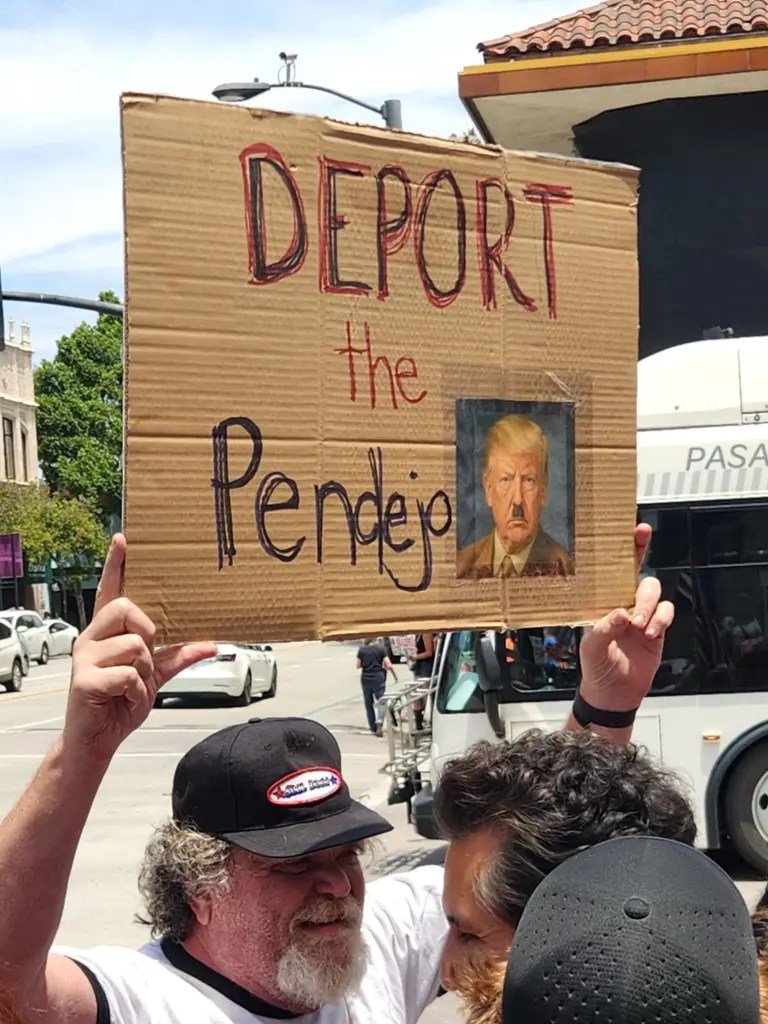 DEPORT
the
Pendejo
PASA